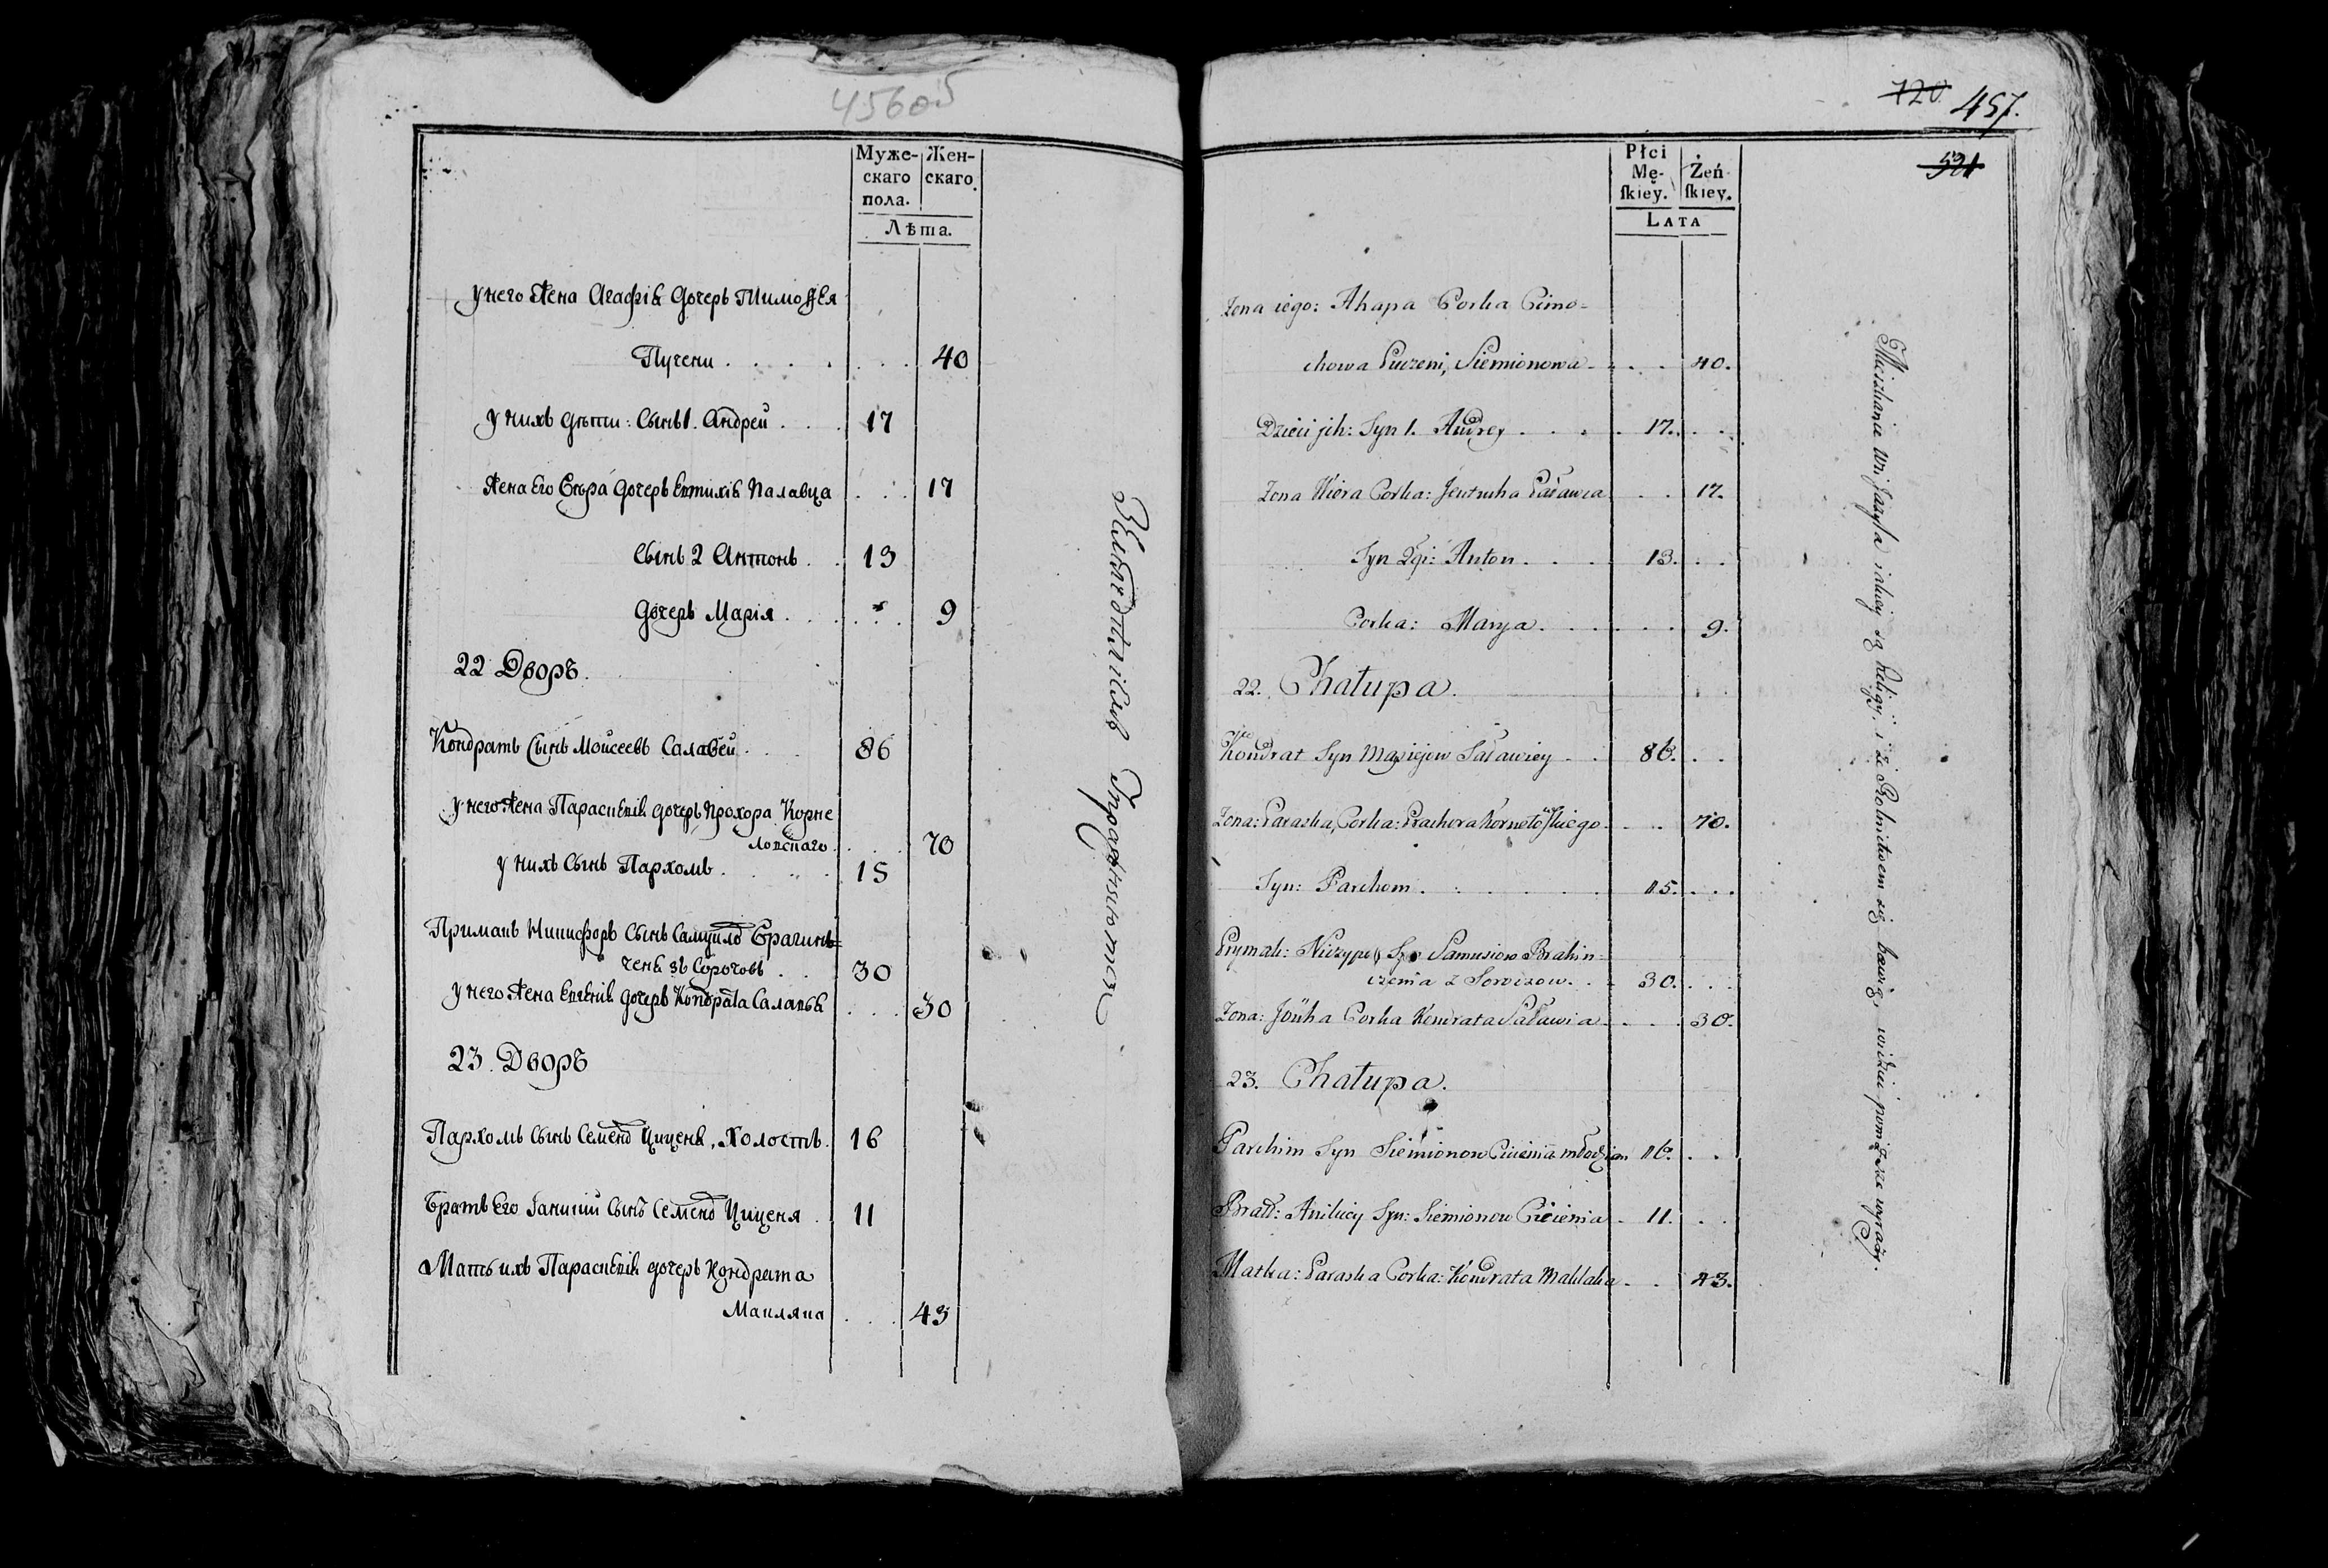 456об
Муже- Жен-
скаго скаго
пола.
Лѣта.
у него жена Агафія дочерь Тимофея
Пучени . . . . . . . 40
у нихъ дѣти: Сынъ 1. Андрей . . . 17
жена Его Вѣра дочерь Евтихія Палавца . . . 17
Сынъ 2 Антонъ . . 13
дочерь Марія . . . . . . 9
22 Дворъ.
Кондратъ Сынъ Моисеевъ Салавей . . . 86
у него жена Параскевія дочерь Прохора Корне
ловскаго . . . . 70
у нихъ Сынъ Пархомъ . . . . 15
Примакъ Никифоръ Сынъ Самуйловъ Брагинь=
ченя зъ . . 30
у него жена Евгенія дочерь Кондрата Салавья . . . 30
23. Дворъ
Пархомъ Сынъ Семеновъ Циценя, Холостъ. 16
Братъ Его Іаникій Сынъ Семеновъ Циценя . 11
Мать ихъ Параскевія дочерь Кондрата
Макляка . . . 43
720 457.
521
Płci
Mę- Żeń
ſkiey. ſkiey.
LATA
Zona iego: Ahapa Corka Cimo=
chowa Puczeni, Siemionowa . . . . 40.
Dzieci jch: Syn 1. Andrey . . . . 17. . .
Zona Wiera Corka: Jeutucha Paławca . . 17.
Syn 2gi: Anton . . . . 13. . .
Corka: Marya . . . . . . 9.
22. Chałupa.
Kondrat Syn Saławiey . . 86. . .
Zona: Paraska, Corka: Prachora Kornelowſkiego . . . 70.
Syn: Parchom . . . . . . 15. . . .
Prymak: Niczypor Syn Samusiow Brahin=
czenia z . . 30. . . .
Zona: Jouha Corka Kondrata Saławia . . . . 30.
23. Chałupa.
Parchim Syn Siemionow Cicienia młodzian 16. . .
Bratt: Anikiey Syn: Siemionow Cicienia . 11. . .
Matka: Paraska Corka: Kondrata Maklaka . . . 43.